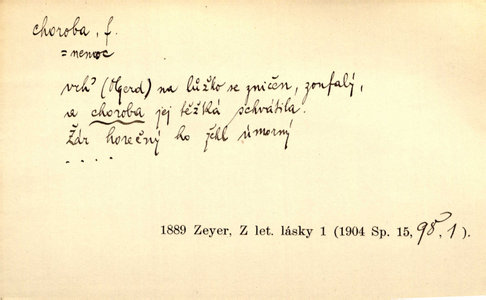 choroba, f.
= nemoc
vrh' (Olgerd) na lůžko se zničen, zoufalý,
a choroba jej těžká schvátila.
Žár horečný ho žehl úmorný
. . . .
1889 Zeyer, Z let. lásky 1 (1904 Sp. 15, 98, 1).